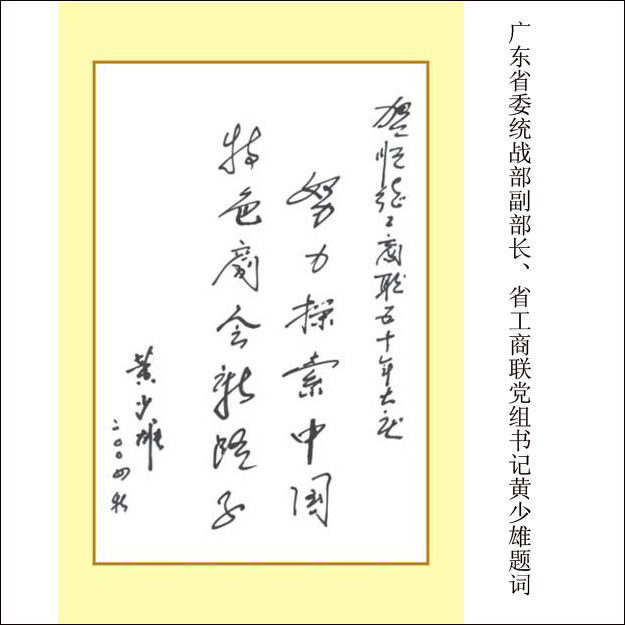 广东省委统战部副部长、省工商联党组书记黄少雄题词
贺顺德工商联五十年大庆
努力探索中国
特色商会新路子
黄少雄
二〇〇四秋